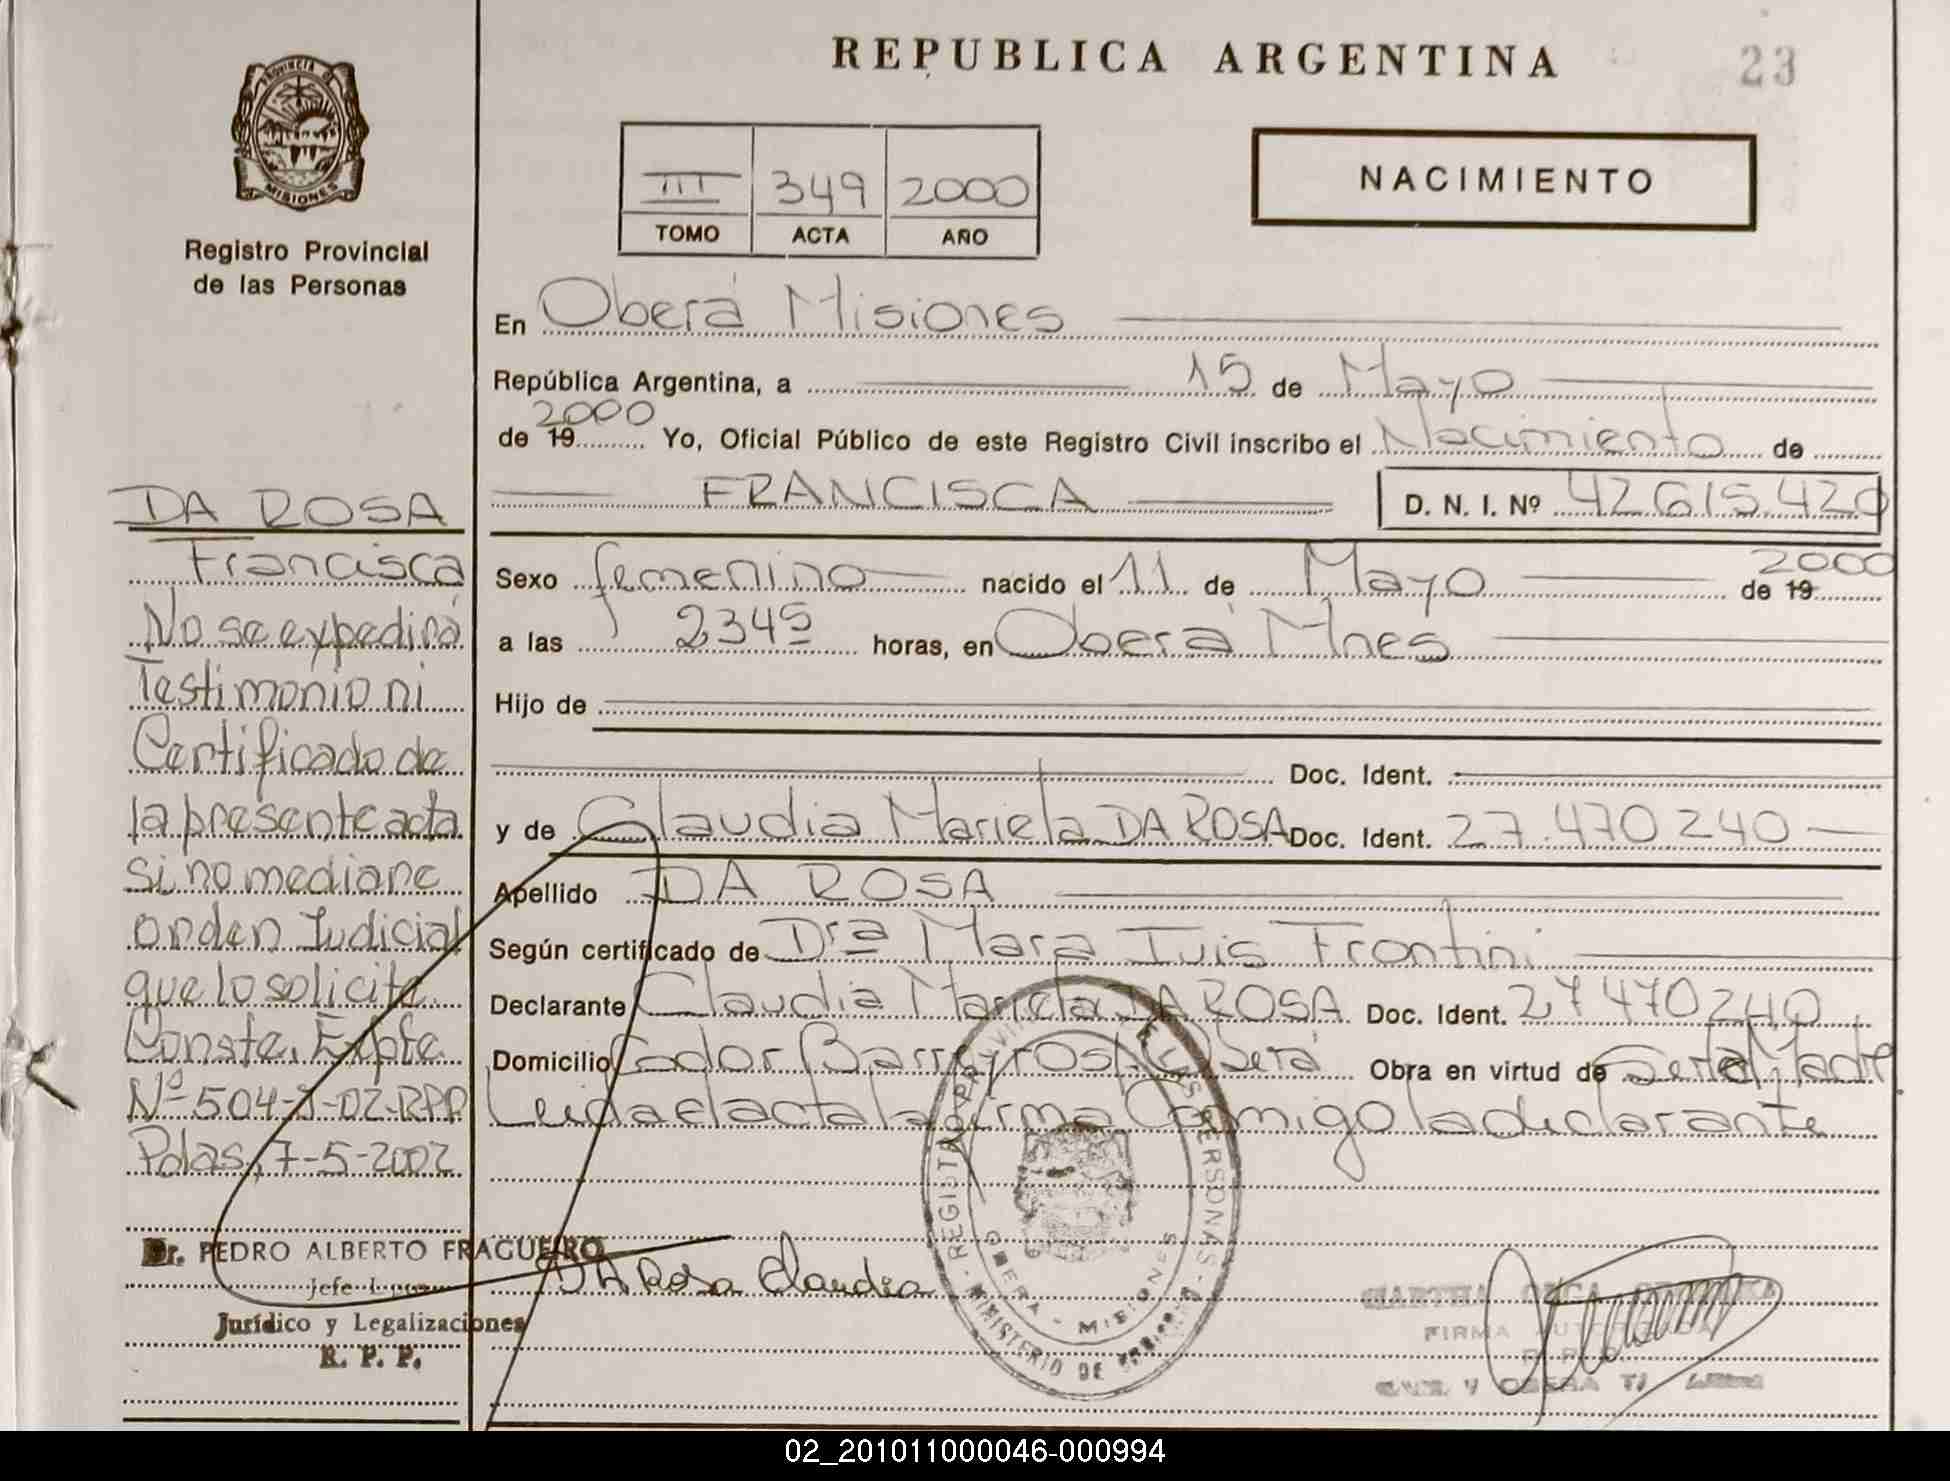 REPUBLICA ARGENTINA
23
PROVINCIA DE
MISIONES
Registro Provincial
de las Personas
III 349 2000
TOMO ACTA AÑO
NACIMIENTO
En Oberá Misiones
República Argentina, a 15 de Mayo
2000
de 19 Yo, Oficial Público de este Registro Civil inscribo el Nacimiento de
FRANCISCA D. N. I. Nº 42.615.420
Sexo femenino nacido el 11 de Mayo de 19 2000
a las 2345 horas, en Oberá Mnes
Hijo de
Doc. Ident.
y de Claudia Mariela DA ROSA Doc. Ident. 27.470240
Apellido DA ROSA
Según certificado de Dra Mara Iuis Frontini
Declarante Claudia Mariela DA ROSA Doc. Ident. 27470240
Domicilio Barreyros Oberá Obra en virtud de Ser la Madre
Leida el acta la firma Conmigo la declarante
DA ROSA
Francisca
No se expedirá
Testimonio ni
Certificado de
la presente acta
si no mediane
orden Judicial
que lo solicite.
Conste. Expte.
Nº 504-J-02-RPP
Pdas, 7-5-2002
Dr. PEDRO ALBERTO FRAGUEIRO
Jefe
Jurídico y Legalizaciones
R. P. P.
DA Rosa Claudia
REGISTRO PROVINCIAL DE LAS PERSONAS
MINISTERIO DE GOBIERNO
OBERA - MISIONES
FIRMA AUTORIZADA
02_201011000046-000994